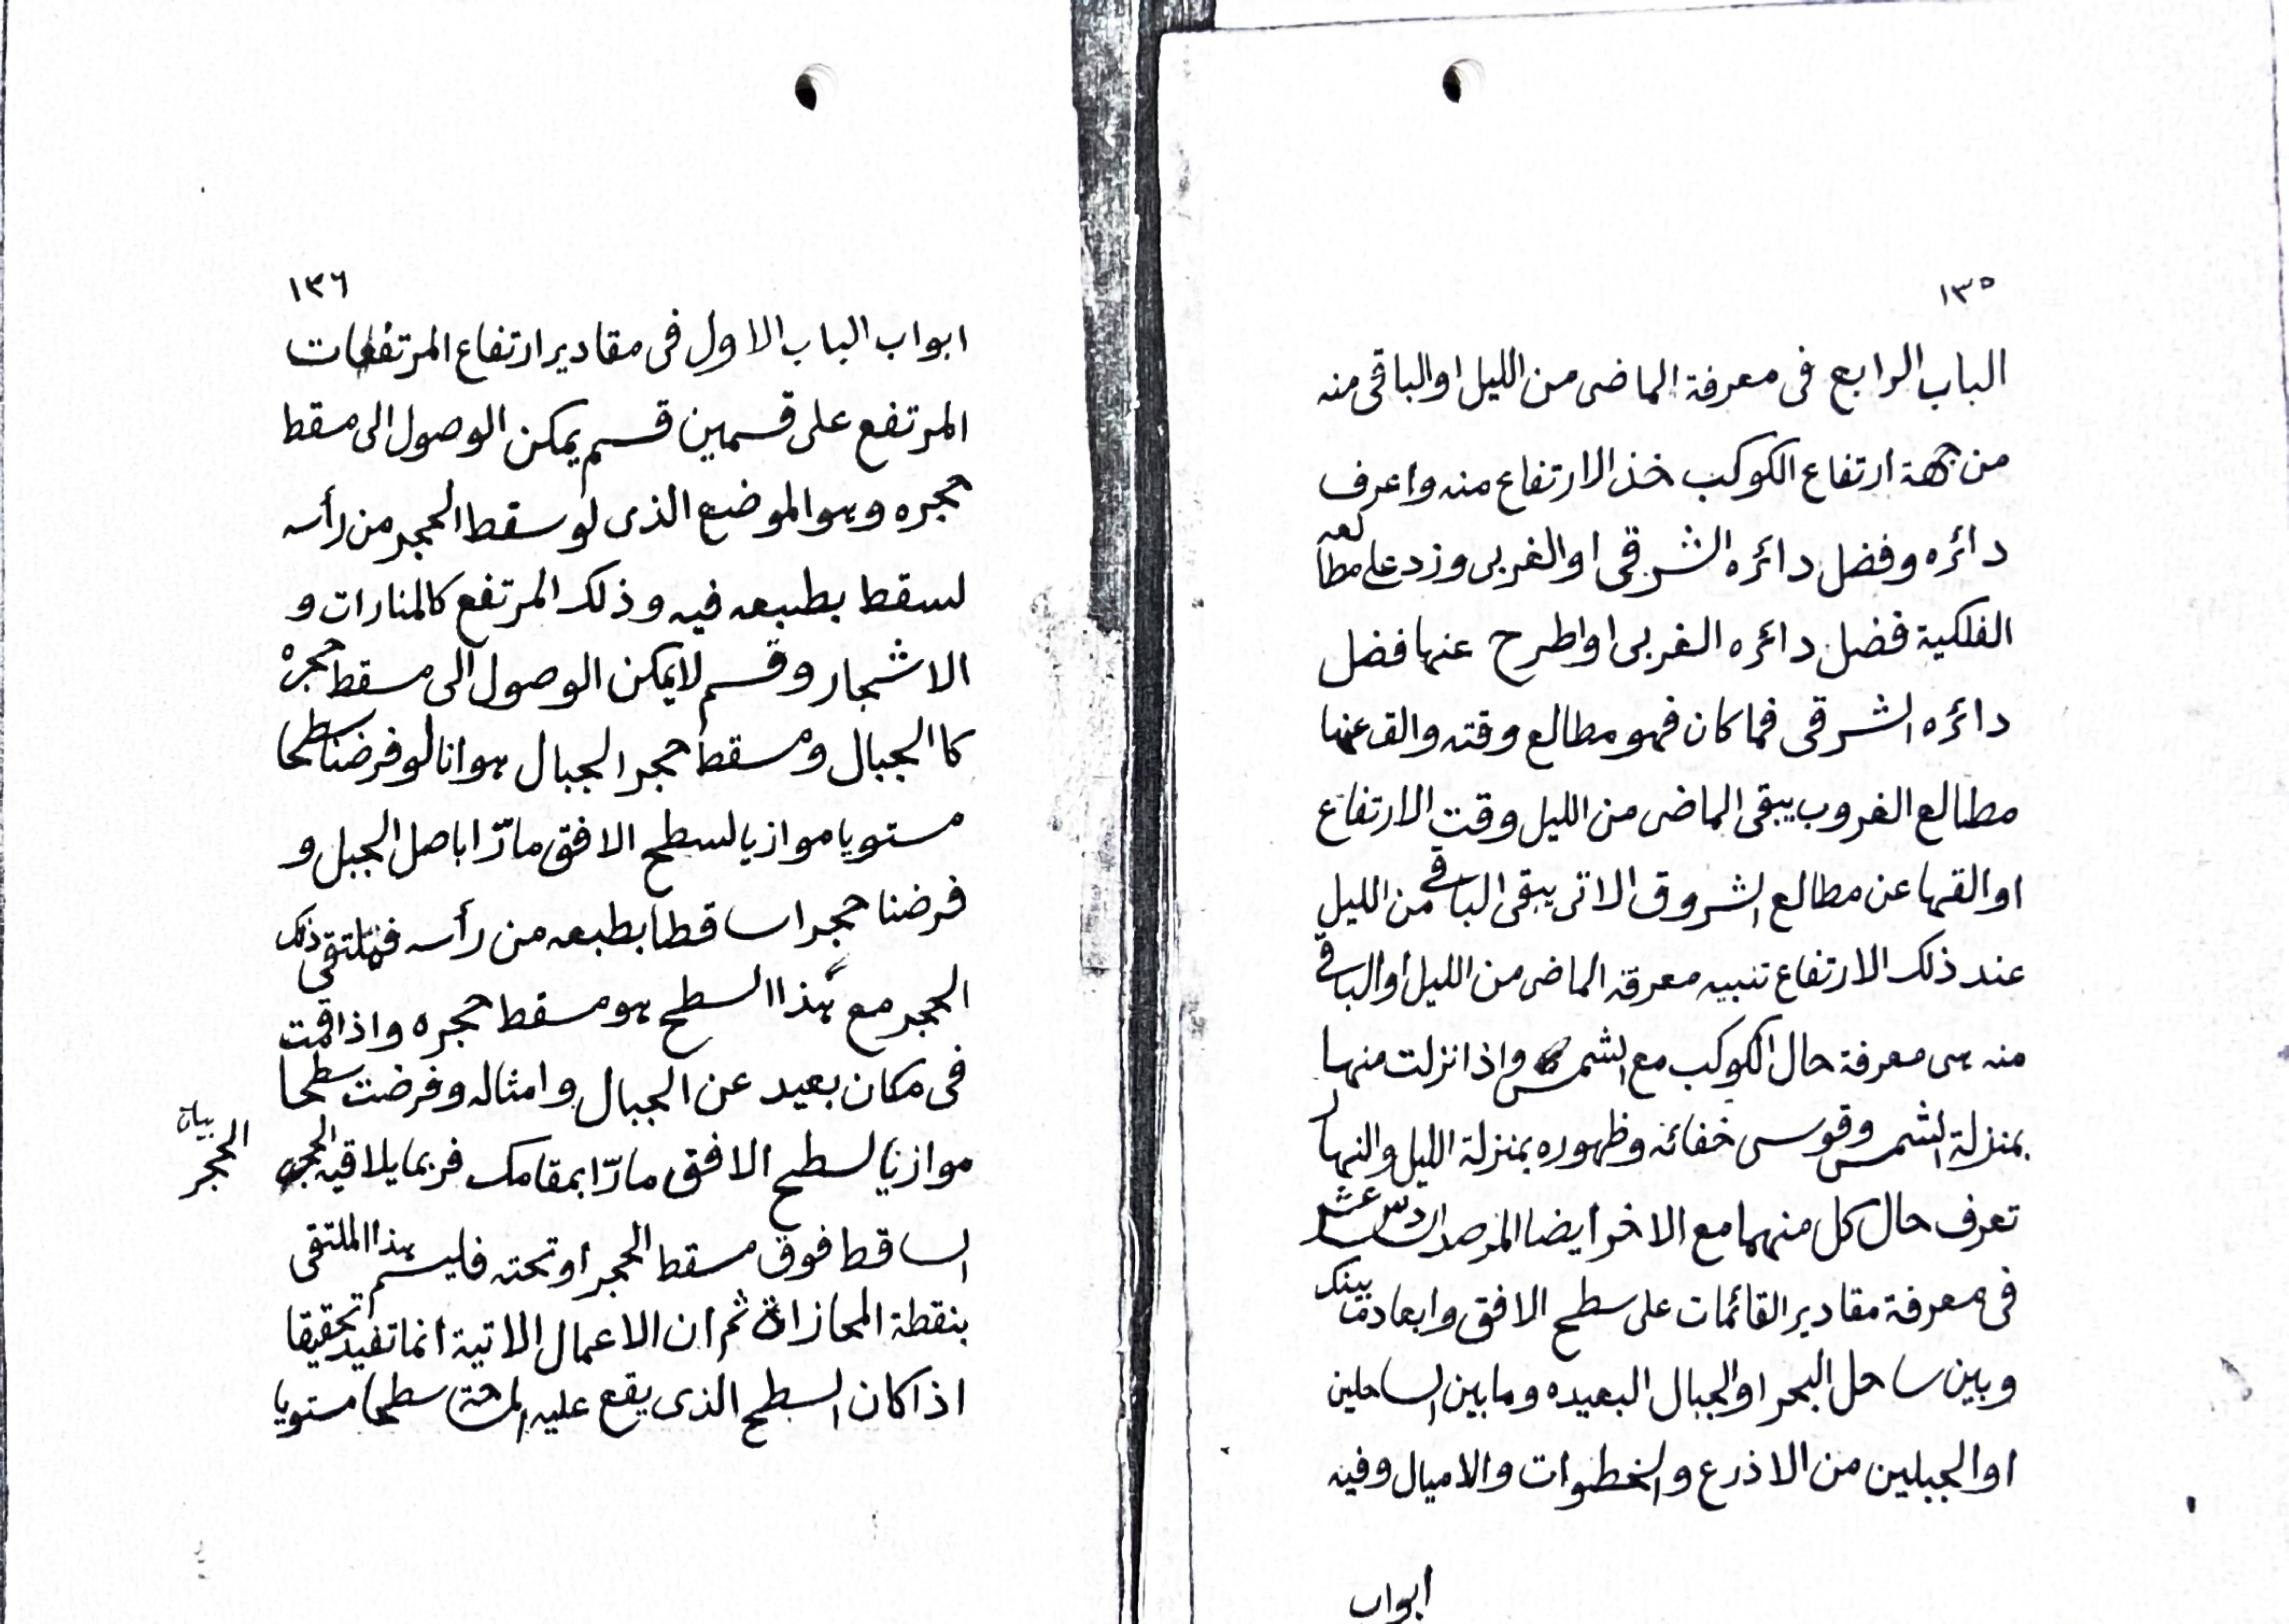 ١٣٥
الباب الرابع فى معرفة الماضى من الليل او الباقى منه
من جهة ارتفاع الكوكب خذ الارتفاع منه واعرف
دائره وفضل دائره الشرقى او الغربى وزد على مطالعه
الفلكية فضل دائره الغربى او اطرح عنها فضل
دائره الشرقى فما كان فهو مطالع وقته والق عنها
مطالع الغروب يبقى الماضى من الليل وقت الارتفاع
او القها عن مطالع الشروق الاتى يبقى الباقى من الليل
عند ذلك الارتفاع تنبيه معرفة الماضى من الليل او الباقى
منه هى معرفة حال الكوكب مع الشمس واذا نزلت منها
بمنزلة الشمس وقوسى خفائه وظهوره بمنزلة الليل والنهار
تعرف حال كل منهما مع الاخر ايضا المرصد السادس عشر
فى معرفة مقادير القائمات على سطح الافق وابعاد ما بينك
وبين ساحل البحر او الجبال البعيده وما بين الساحلين
او الجبلين من الاذرع والخطوات والاميال وفيه
ابواب
١٣٦
ابواب الباب الاول فى مقادير ارتفاع المرتفعات
المرتفع على قسمين قسم يمكن الوصول الى مسقط
حجره وهو الموضع الذى لو سقط الحجر من رأسه
لسقط بطبعه فيه وذلك المرتفع كالمنارات و
الاشجار وقسم لا يمكن الوصول الى مسقط حجره
كا الجبال ومسقط حجر الجبال هو انا لو فرضنا سطحا
مستويا موازيا لسطح الافق مارّا باصل الجبل و
فرضنا حجرا ساقطا بطبعه من رأسه فملتقى ذلك
الحجر مع هذا السطح هو مسقط حجره واذا قمت
فى مكان بعيد عن الجبال وامثاله وفرضت سطحا
موازيا لسطح الافق مارّا بمقامك فربما يلاقيه الحجر
بيان
الحجر
الساقط فوق مسقط الحجر او تحته فليسم هذا الملتقى
بنقطة المحازاة ثم ان الاعمال الاتية انما تفيد تحقيقا
اذا كان السطح الذى يقع عليه المساحة سطحا مستويا